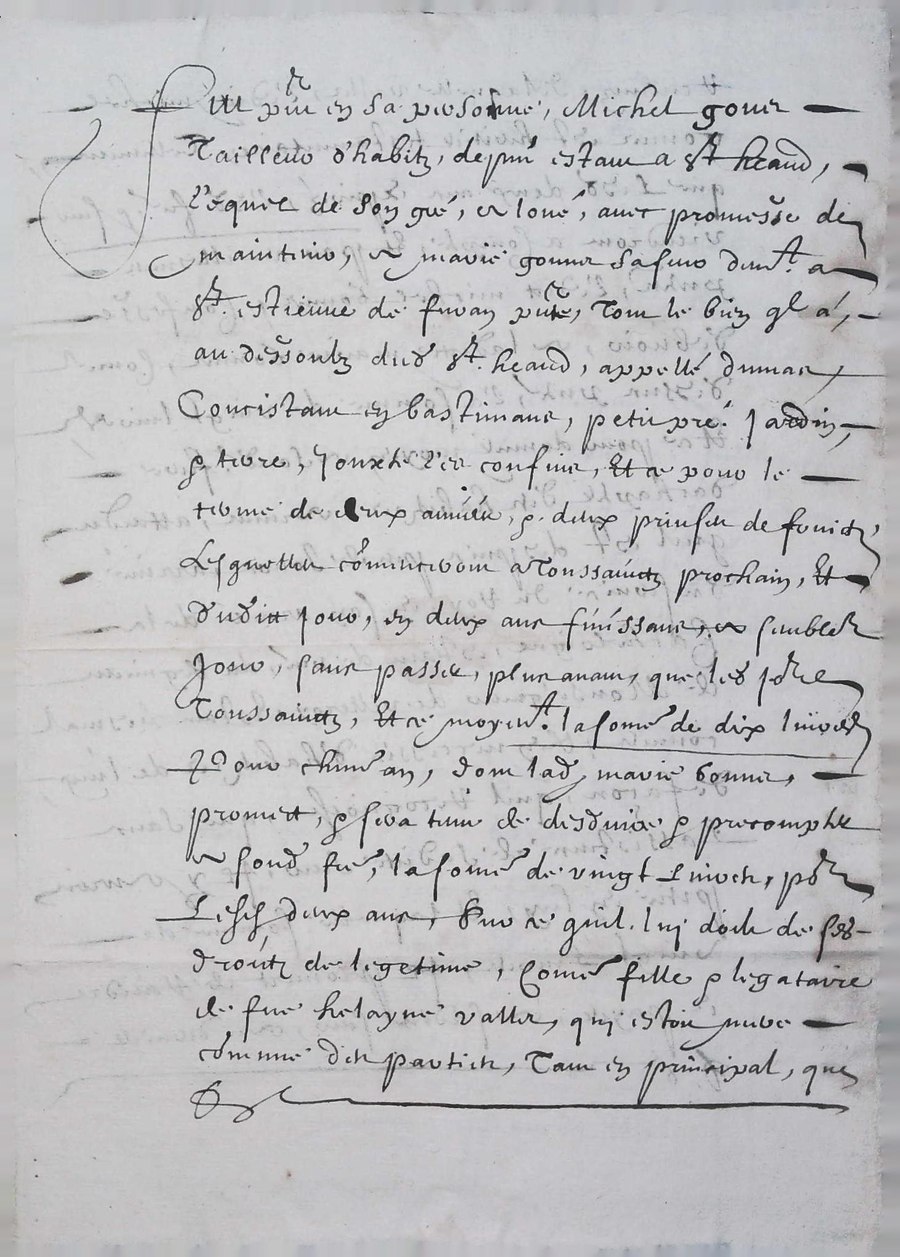 Fut pñt en sa personne, Michel goner
Tailleur d'habitz, de pñt estant a St heand,
Lequel de son gré, et loué, avec promesse de
maintenir, et marie gonner sa seur demt. a
St. estienne de furan pñte, Tout le bien ql a,
au dessoubz dud St. heand, appellé
Concistant en bastimans, petit pré, Jardin,
& terre, Jouxte Les confins, Et ce pour le
terme de deux années, & deux prinses de fruictz,
Lesquelles cõmenceront a Toussainctz prochain, Et
dudit Jour, en deux ans finissans, et semblable
Jour, sans passer, plus avant, que led Jour de
Toussainctz, Et ce moyent. la some de dix livres
Pour chun an, dont lad marie Gonner,
promett, & sera tenue de desduire & precompter
a sond frē, la some de vingt Livres, pour
Lesd deux ans, Sur ce quil luj doibt de ses
droictz de legetime, Come fille & legataire
de fue helayne valler, quj estoit mere
cõmune des parties, Tant en principal, que